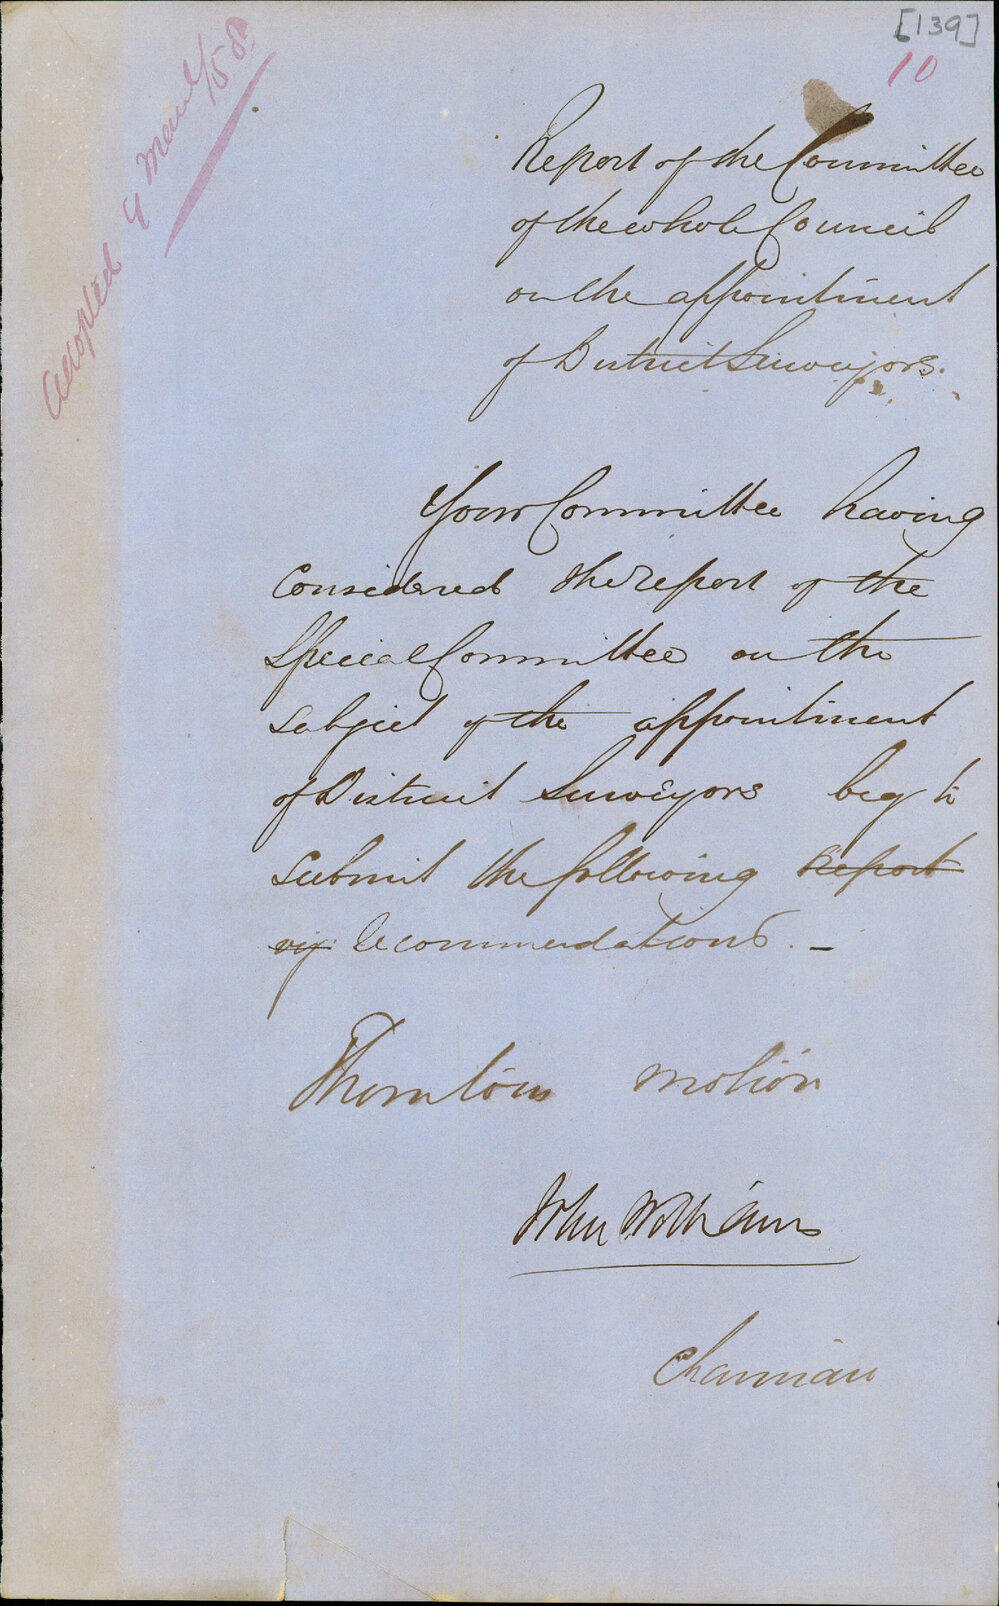 [139]
10
Adopted 9 March/58
Report of the Committee
of the whole Council
on the appointment
of District Surveyors.
Your Committee having
considered the report of the
Special Committee on the
subject of the appointment
of District Surveyors beg to
submit the following Report
viz Recommendations. –
Thorntons motion
John Williams
Chairman